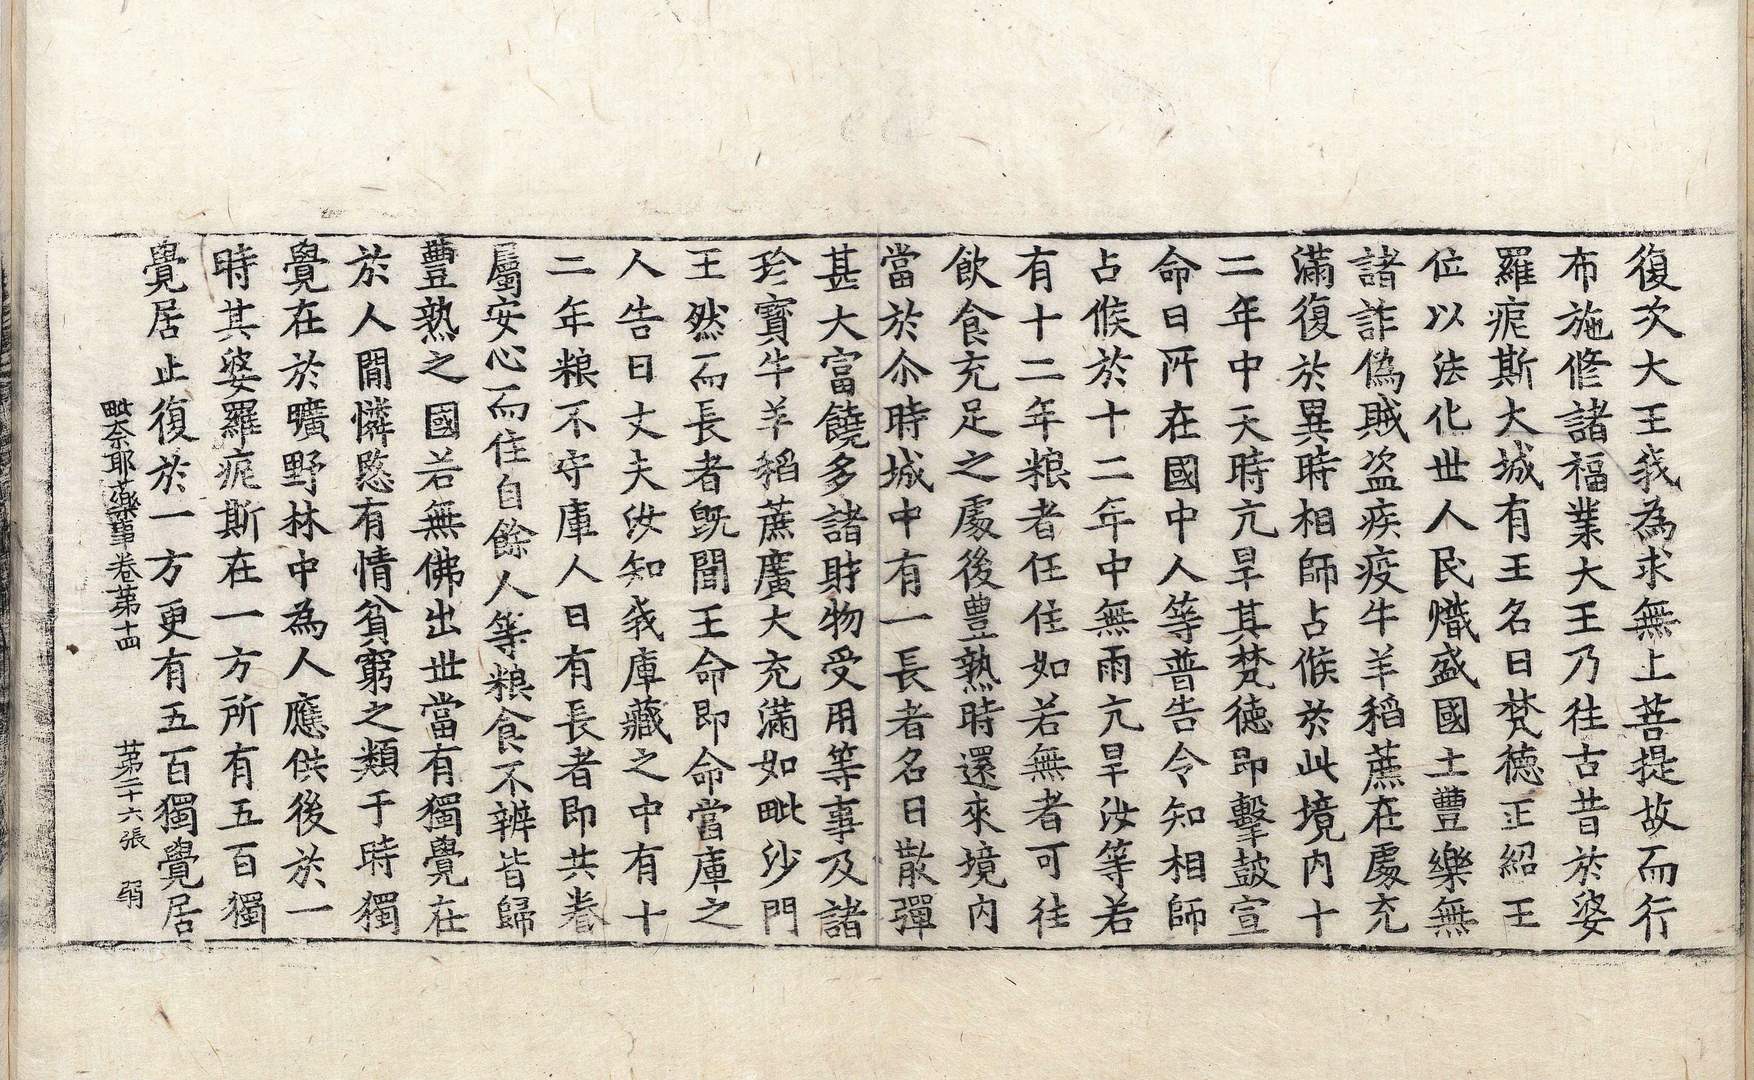 復次大王我為求無上菩提故而行
布施修諸福業大王乃往古昔於婆
羅痆斯大城有王名曰梵德正紹王
位以法化世人民熾盛國土豐樂無
諸詐偽賊盜疾疫牛羊稻蔗在處充
滿復於異時相師占候於此境內十
二年中天時亢旱其梵德即擊鼓宣
命曰所在國中人等普告令知相師
占候於十二年中無雨亢旱汝等若
有十二年粮者任住如若無者可往
飲食充足之處後豊熟時還來境內
當於尒時城中有一長者名曰散彈
甚大富饒多諸財物受用等事及諸
珎寳牛羊稻蔗廣大充滿如毗沙門
王然而長者旣聞王命即命當庫之
人告曰丈夫汝知我庫藏之中有十
二年粮不守庫人曰有長者即共眷
屬安心而住自餘人等粮食不辦皆歸
豊熟之國若無佛出世當有獨覺在
於人閒憐愍有情貧窮之類于時獨
覺在於曠野林中為人應供後於一
時其婆羅痆斯在一方所有五百獨
覺居止復於一方更有五百獨覺居
毗奈耶藥事卷苐十四 苐二十六張 弱